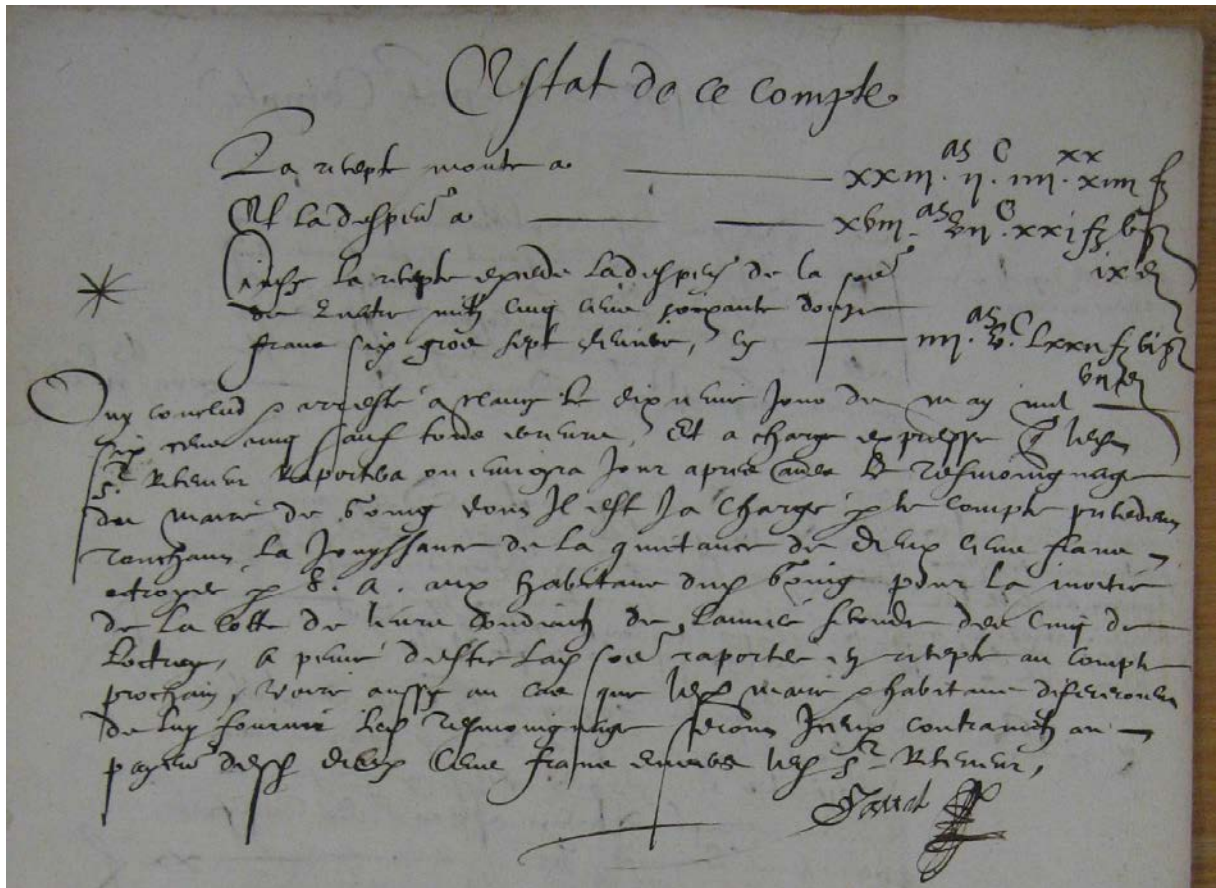 Estat de ce compte
La recepte monte a xxiii. as ii. C iiii. xx xiiii fz
Et la despence a xviii. as vii. C xxi fz vi gr
ix d
Ainsy la recepte excede la despence de la some
de quatre milz cinq cens soixante douze
francs six gros sept deniers, Cy iiii. as v. C lxxii fz vi gr
vii d
Ouy conclud & arresté a Nancy le dixieme Jour de may mil
six cens cinq sauf tous erreure, Et a charge expresse q led
sr Receveur Raportera jour apres avec le tesmoingnage
du maire de Going dont Il est Ja Charge p le compte precedent
touchant la Jouyssance de la quictance de deux cens francs
octroyee p S. A. aux habitans dud Going pour la moitié
de la cotte de leurs de l'année seconde des Cinq de
Loctroy, a peine destre lad some raportee en recepte au compte
prochain, voire aussy au cas que lesd maire & habitans differeront
de luy fournir led tesmoingnage seront Iceux contrainctz au
payem desd deux Cens francs envers led sr Receveur,